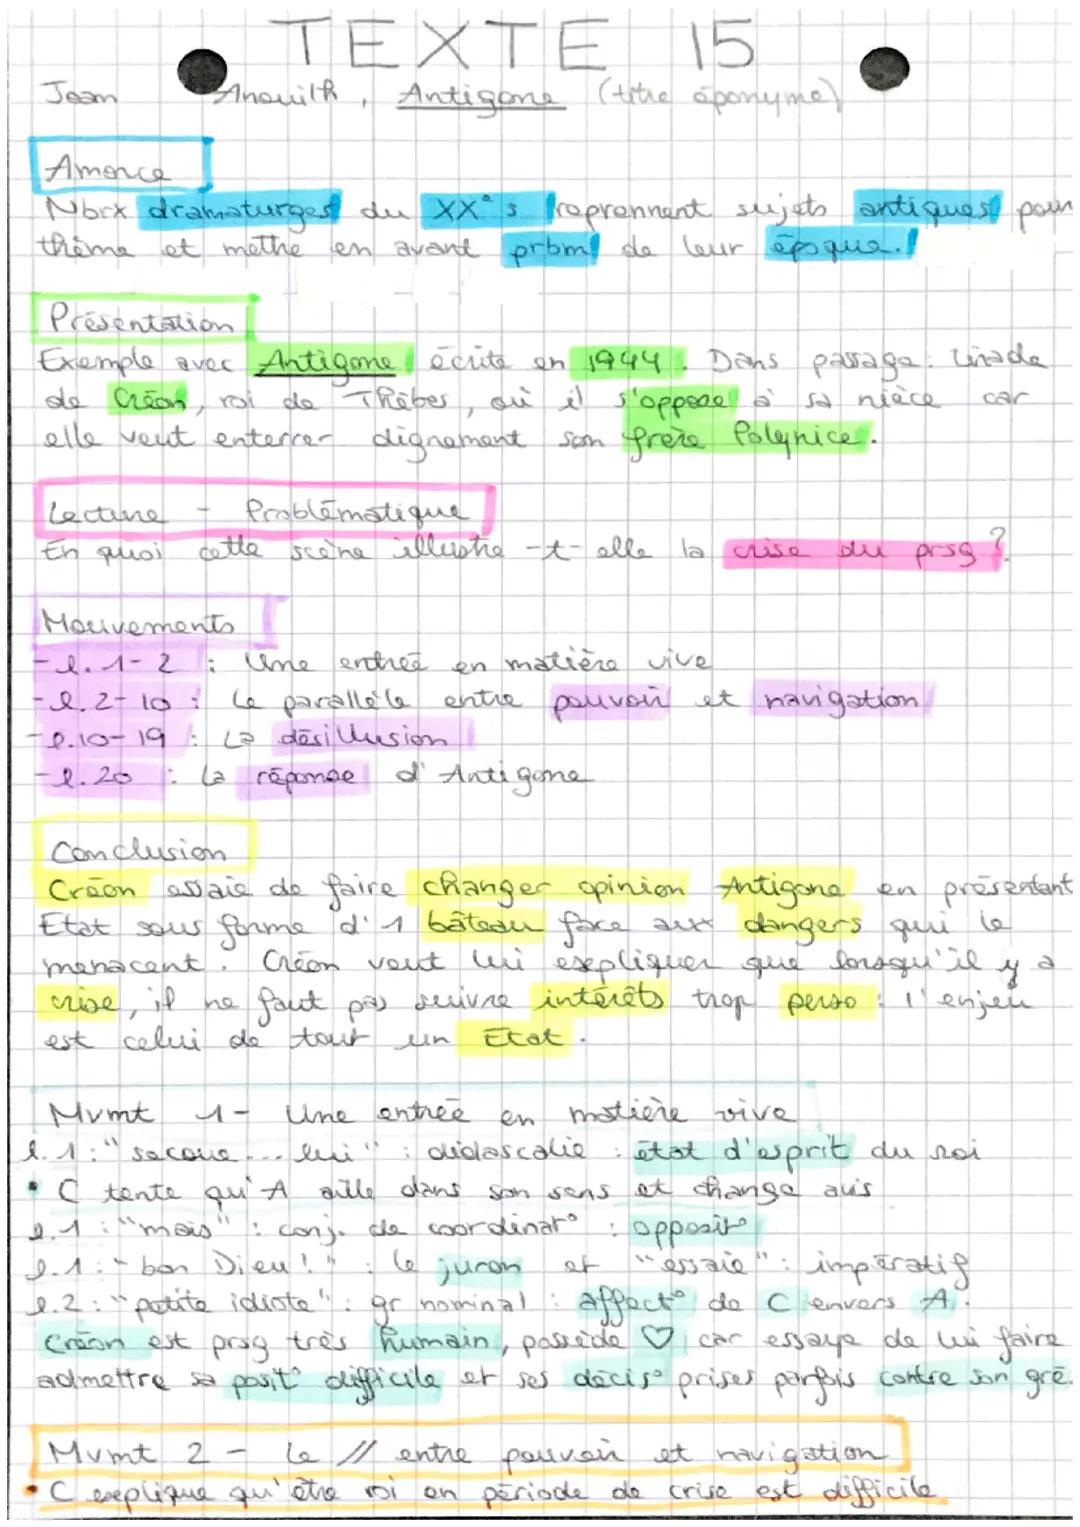 TEXTE 15
Jean Anouilh, Antigone (titre éponyme)
Amorce
Nbrx dramaturges du XX° s reprennent sujets antiques pour
thème et mettre en avant prbm de leur époque.
Présentation
Exemple avec Antigone écrite en 1944. Dans passage: tirade
de Créon, roi de Thèbes, où il s'oppose à sa nièce car
elle veut enterrer dignement son frère Polynice.
Lecture - Problématique
En quoi cette scène illustre-t-elle la crise du prsg?
Mouvements
-l. 1-2 : Une entrée en matière vive
-l. 2-10 : Le parallèle entre pouvoir et navigation
-l. 10-19 : La désillusion
-l. 20 : La réponse d'Antigone
Conclusion
Créon essaie de faire changer opinion Antigone en présentant
Etat sous forme d'1 bâteau face aux dangers qui le
menacent. Créon veut lui expliquer que lorsqu'il y a
crise, il ne faut pas suivre intérêts trop perso : l'enjeu
est celui de tout un Etat.
Mvmt 1- Une entrée en matière vive
l. 1: "secoue... lui" : didascalie : état d'esprit du roi
• C tente qu'A aille dans son sens et change avis
l. 1 : "mais" : conj. de coordinat° : opposit°
l. 1: "bon Dieu!" : le juron et "essaie" : impératif
l. 2 : "petite idiote" : gr nominal : affect° de C envers A.
Créon est prsg très humain, possède ♡ car essaye de lui faire
admettre sa posit° difficile et ses décis° prises parfois contre son gré.
Mvmt 2 - Le // entre pouvoir et navigation
• C explique qu'être roi en période de crise est difficile